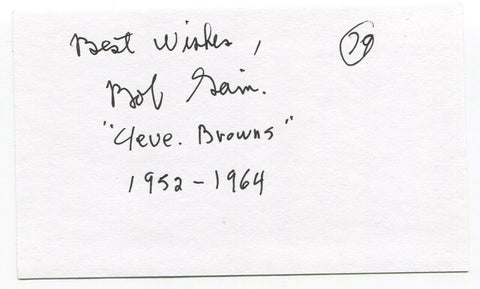 Best Wishes, 79
Bob Gain.
"Cleve. Browns"
1952-1964